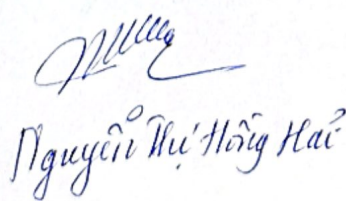 Nguyễn Thị Hồng Hải